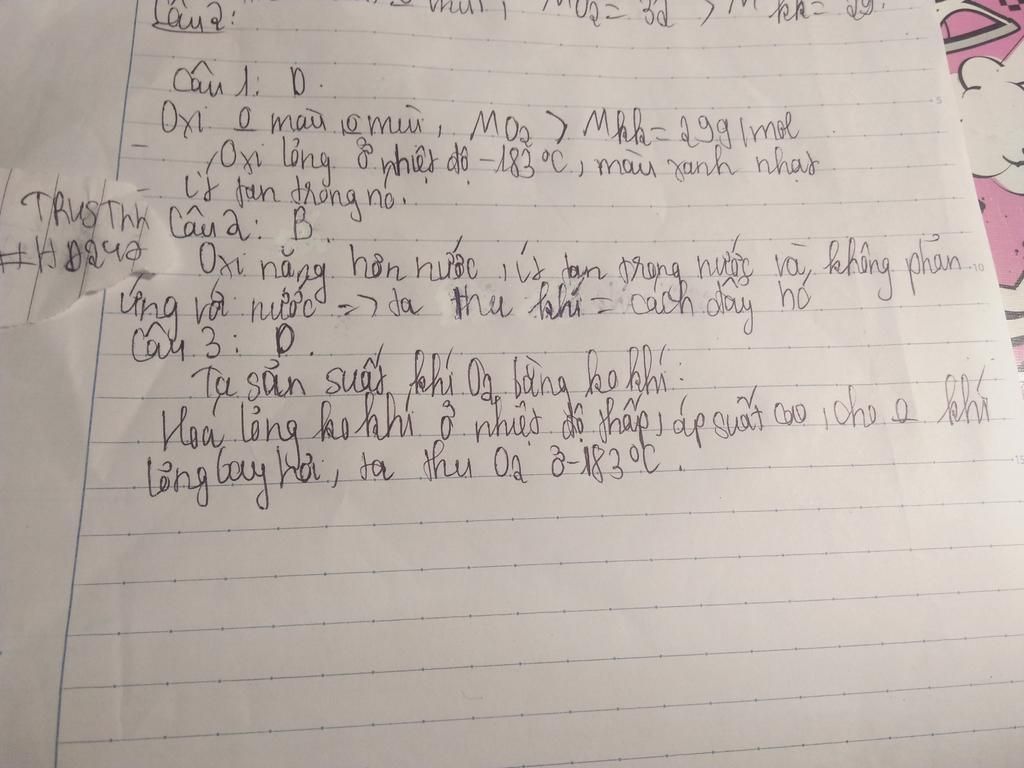 Câu 2: mùi, MO2 = 32 > M kk = 29.
Câu 1: D.
Oxi 0 màu, 0 mùi, MO2 > Mkk = 29g/mol
- Oxi lỏng ở nhiệt độ -183°C, màu xanh nhạt
- ít tan trong nó.
TRUSTHH
#HD240
Câu 2: B.
Oxi nặng hơn nước, ít tan trong nước và không phản
ứng với nước => ta thu khí = cách đẩy nó
Câu 3: D.
Ta sản suất khí O2 bằng ko khí:
Hoá lỏng ko khí ở nhiệt độ thấp, áp suất cao, cho 0 khí
lỏng bay hơi, ta thu O2 ở -183°C.